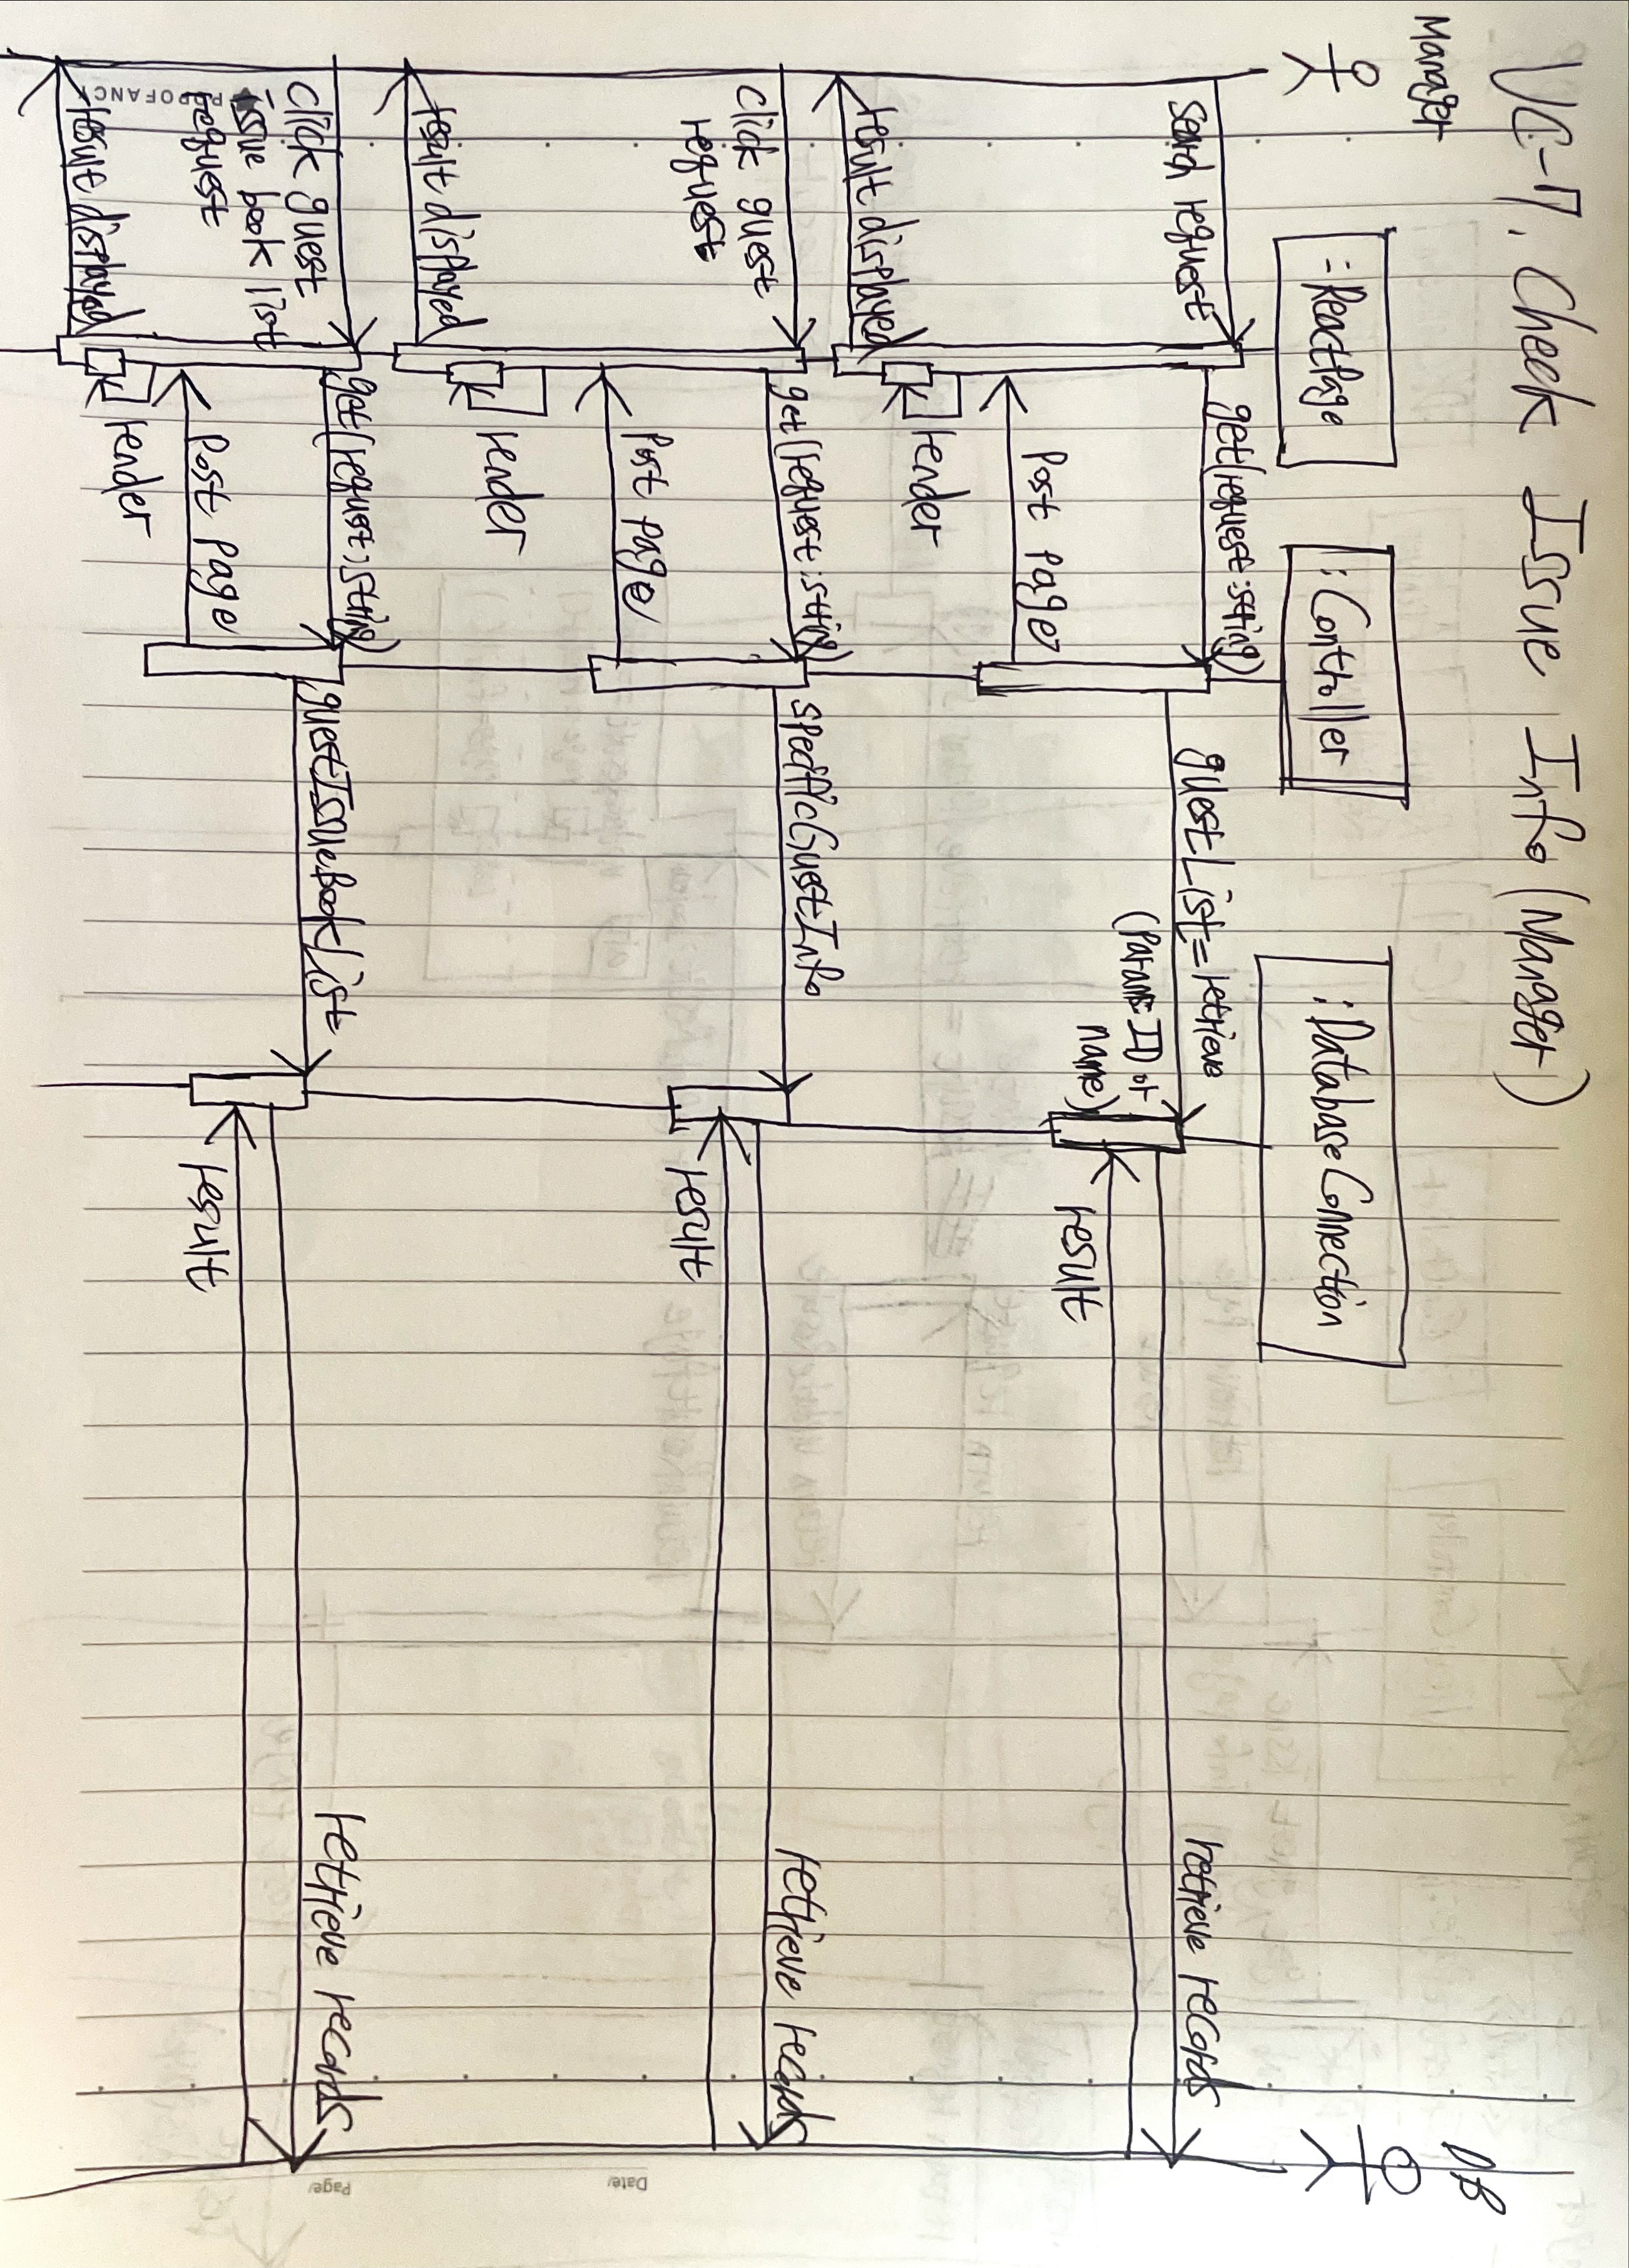 UC-7. Check Issue Info (Manager)
Manager
DB
:ReactPage
:Controller
:DatabaseConnection
search request
get(request:string)
guestList=retrieve
(Params:ID or
name)
retrieve records
result
Post Page
render
result displayed
click guest
request
get(request:string)
specificGuestInfo
retrieve records
result
Post Page
render
result displayed
click guest
issue book list
request
get(request:string)
guestIssueBookList
retrieve records
result
Post Page
render
result displayed
Date/
Page/